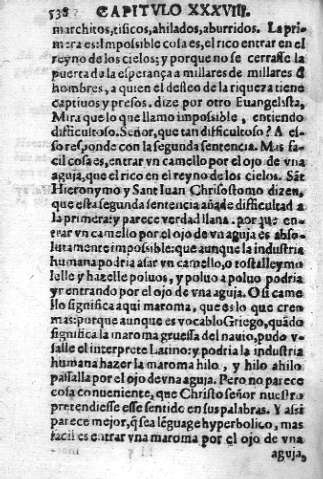 538 CAPITVLO XXXVIII.
marchitos, tisicos, ahilados, aburridos. La pri-
mera es: Impossible cosa es, el rico entrar en el
reyno de los cielos; y porque no se cerrasse la
puerta de la esperança a millares de millares đ
hombres, a quien el desseo de la riqueza tiene
captiuos y presos. dize por otro Euangelista,
Mira que lo que llamo impossible, entiendo
difficultoso. Señor, que tan difficultoso? A es-
so responde con la segunda sentencia. Mas fa-
cil cosa es, entrar vn camello por el ojo de vna
aguja, que el rico en el reyno de los cielos. Sāt
Hieronymo y Sant Iuan Chrisostomo dizen,
que esta segunda sentencia añade difficultad a
la primera: y parece verdad llana. porque en-
trar vn camello por el ojo de vna aguja es abso-
lutamente impossible: que aunque la industria
humana podria asar vn camello, o tostalle y mo
lelle y hazelle poluos, y poluo a poluo podria
yr entrando por el ojo de vna aguja. O si came
llo significa aqui maroma, que es lo que cren
mas: porque aunque es vocablo Griego, quādo
significa la maroma gruessa del nauio, pudo v-
salle el interprete Latino: y podria la industria
humana hazer la maroma hilo, y hilo ahilo
passalla por el ojo de vna aguja. Pero no parece
cosa conueniente, que Christo señor nuestro
pretendiesse esse sentido en sus palabras. Y assi
parece mejor, q̃ sea lēguage hyperbolico, mas
facil es entrar vna maroma por el ojo de vna
aguja,